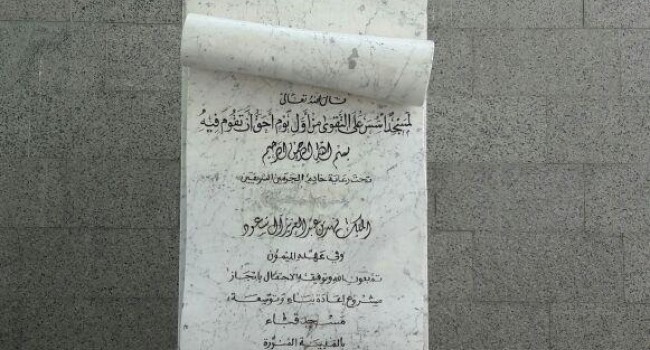 قال الله تعالى
لمسجد أسس على التقوى من أول يوم أحق أن تقوم فيه
بسم الله الرحمن الرحيم
تحت رعاية خادم الحرمين الشريفين
الملك فهد بن عبد العزيز آل سعود
وفي عهده الميمون
تم بعون الله وتوفيقه الاحتفال بإنجاز
مشروع إعادة بناء وتوسعة
مسجد قباء
بالمدينة المنورة